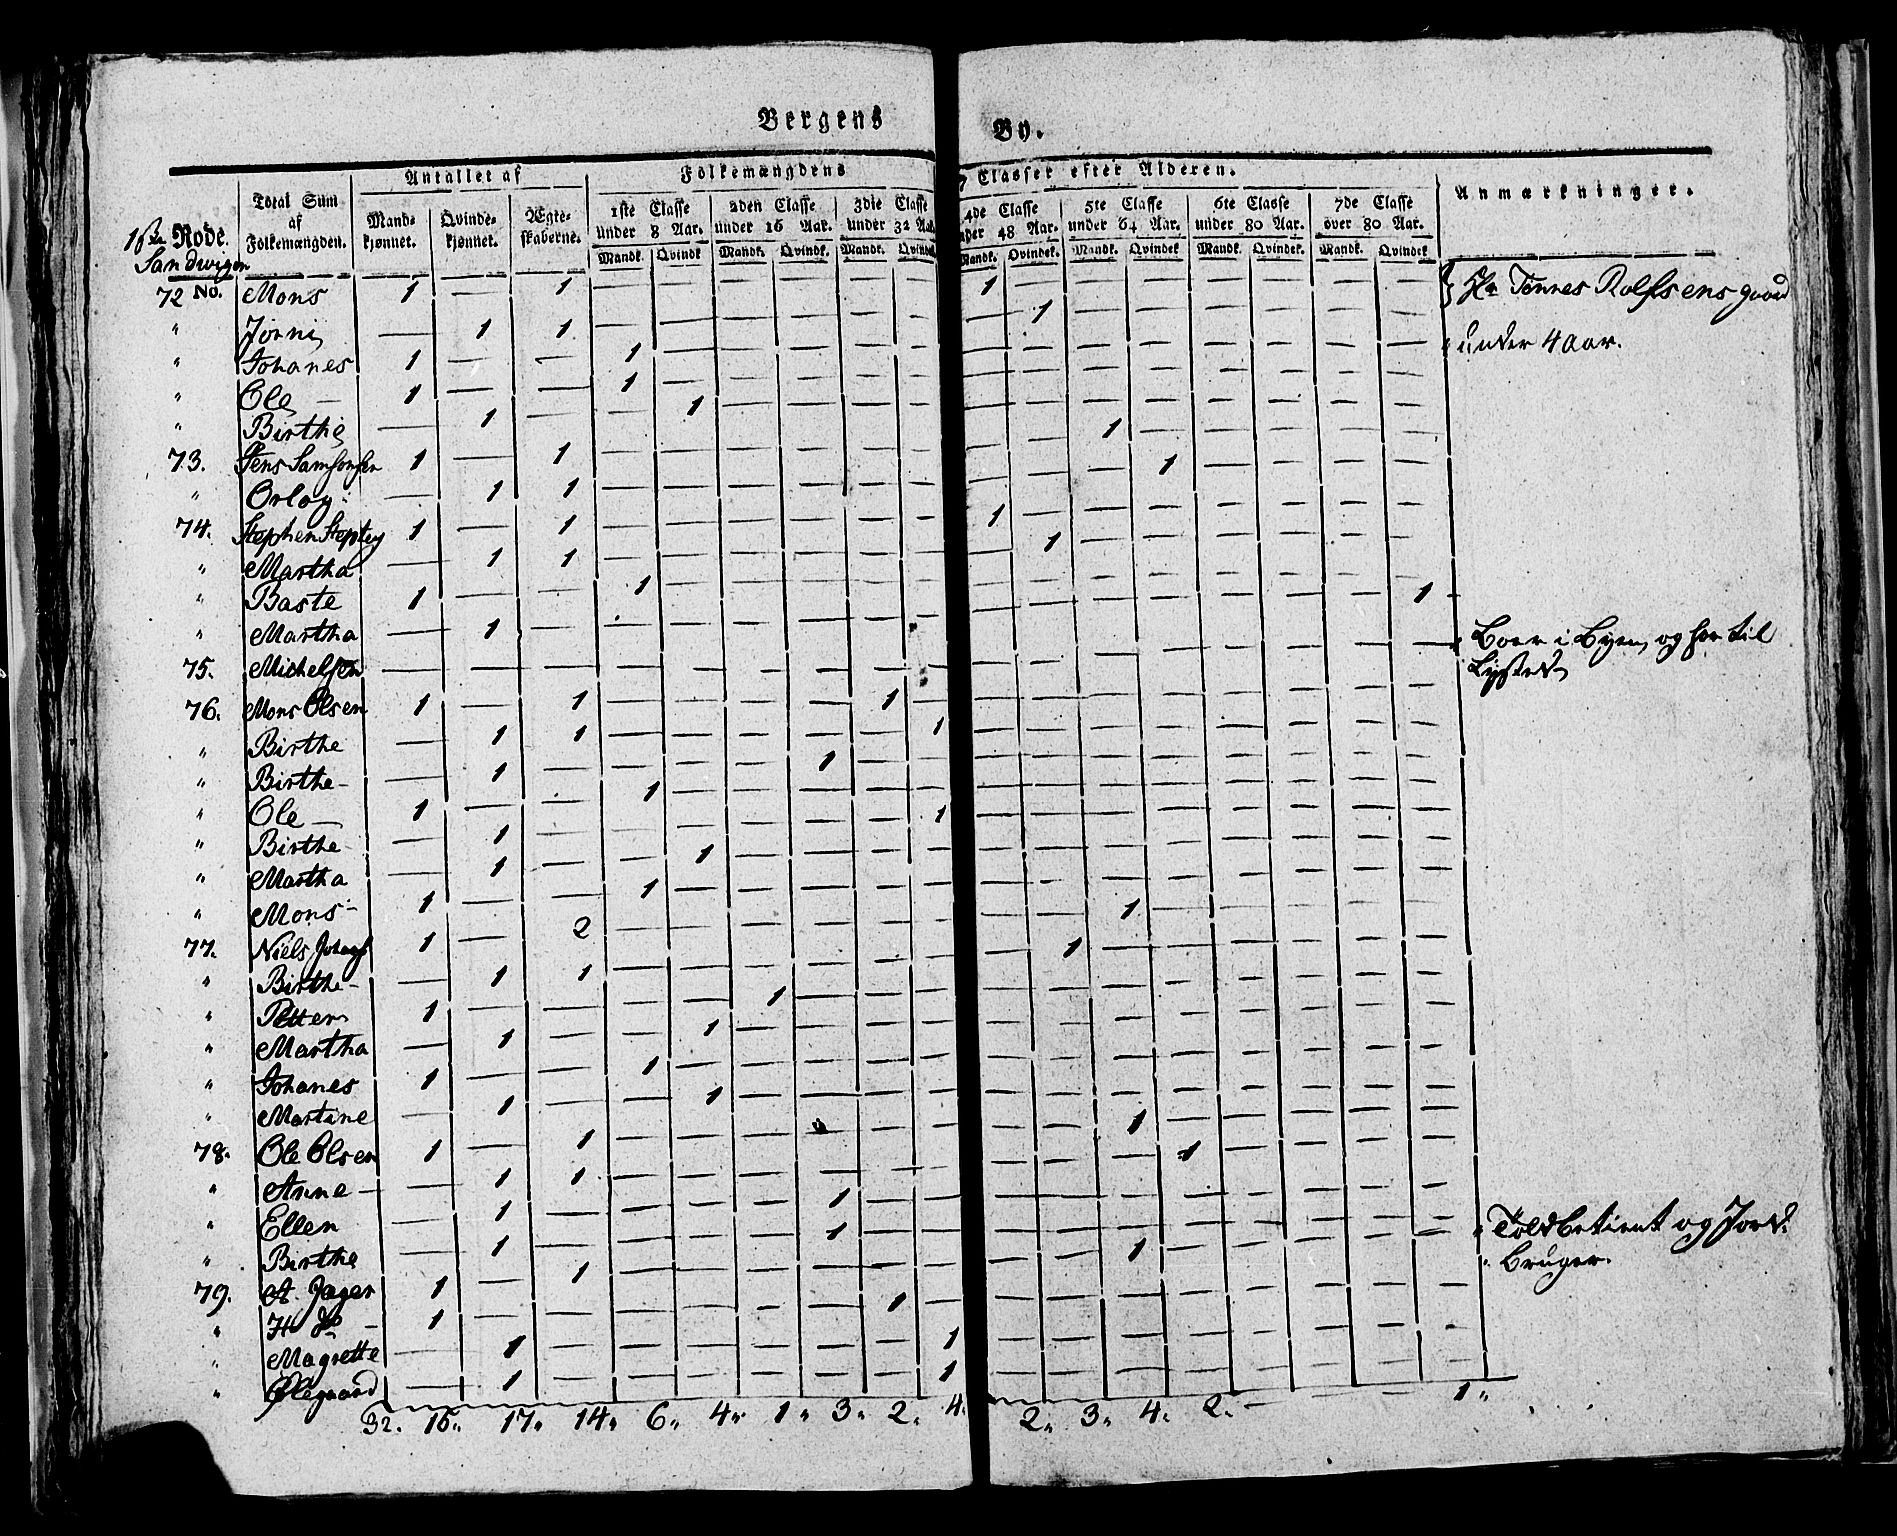 Bergens By.
16de Rode.
Sandwigen
No.
Total Sum af Folkemængden.
Antallet af
Mandkjønnet. Qvindekjønnet. Ægteskaberne.
Folkemængdens
Classer efter Alderen.
1ste Classe under 8 Aar. 2den Classe under 16 Aar. 3die Classe under 32 Aar. 4de Classe under 48 Aar. 5te Classe under 64 Aar. 6te Classe under 80 Aar. 7de Classe over 80 Aar.
Mandk. Qvindk Mandk. Qvindk. Mandk. Qvindek Mandk. Qvindek. Mandk. Qvindek Mandk. Qvindek. Mandk. Qvindek
Anmærkninger.
72 Mons 1 — 1 1 Tønnes Rolfsens gaard
" Jørni — 1 1 1
" Johanes 1 — — 1 under 4 Aar.
" Ole — 1 — — 1
" Birthe — 1 — 1
73. Jens Samsonsen 1 — 1 1
" Orløg — 1 1 1
74. Stephen 1 — 1 1
" Martha — 1 1 1
" Baste 1 — — 1
" Martha — 1 — 1
75. Michelsen Boer i Byen, og har til Lysted
76. Mons Olsen 1 — 1 1
" Birthe — 1 1 1
" Birthe — 1 — 1
" Ole 1 — — 1
" Birthe — 1 — 1
" Martha — 1 — 1
" Mons 1 — — 1
77. Niels 1 — 2 1
" Birthe — 1 1 1
" Petter 1 — — 1
" Martha — 1 — 1
" Johanes 1 — — 1
" Martine — 1 — 1
78. Ole Olsen 1 — 1 1
" Anne — 1 1 1
" Ellen — 1 — 1
" Birthe — 1 — 1
79. A. Jager 1 — 1 1 Toldbetient og Jord Bruger.
" H 1 — — 1
" Magrette — 1 — 1
" Ølegaard — 1 — 1
32. 15. 17. 14. 6. 4. 1. 3. 2. 4. 2. 3. 4. 2. — 1.